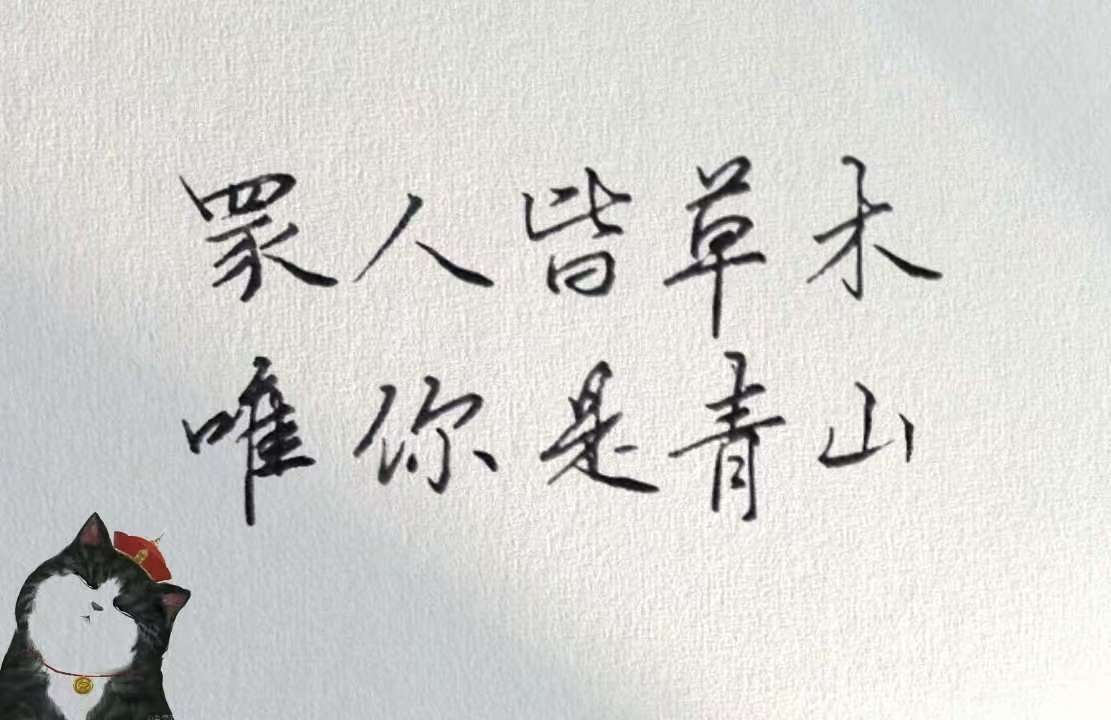 眾人皆草木
唯你是青山